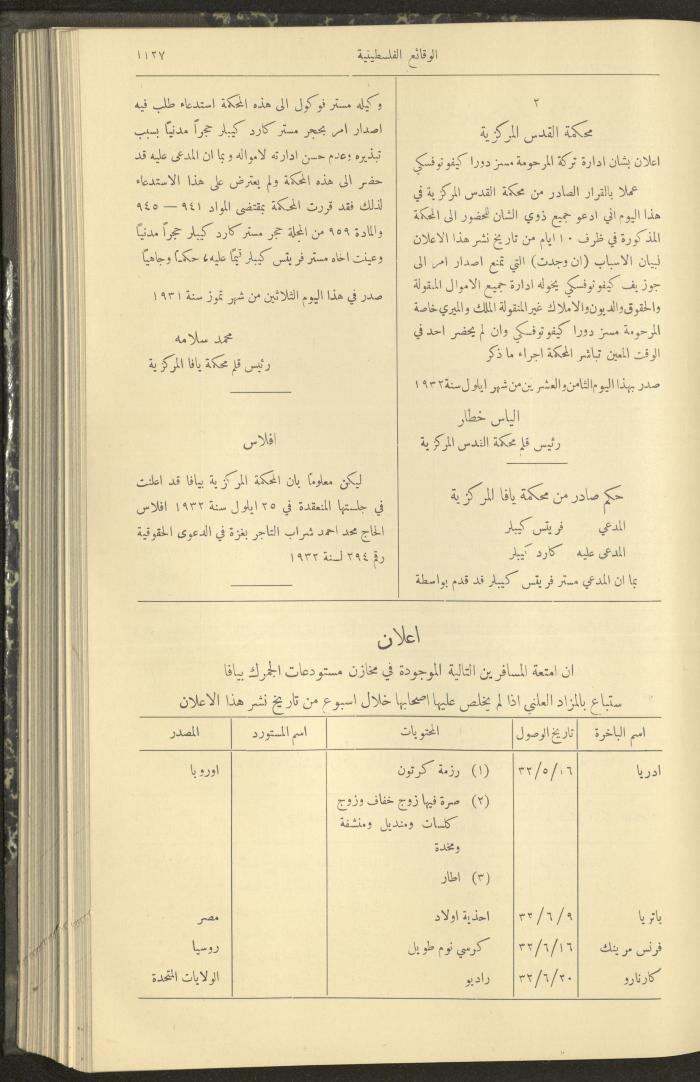 الوقائع الفلسطينية
١١٢٧
٢
محكمة القدس المركزية
اعلان بشان ادارة تركة المرحومة مسز دورا كيفونوفسكي
عملا بالقرار الصادر من محكمة القدس المركزية في
هذا اليوم اني ادعو جميع ذوي الشان للحضور الى المحكمة
المذكورة في ظرف ١٠ ايام من تاريخ نشر هذا الاعلان
لبيان الاسباب (ان وجدت) التي تمنع اصدار امر الى
جوزيف كيفونوفسكي يخوله ادارة جميع الاموال المنقولة
والحقوق والديون والاملاك غير المنقولة الملك والميري خاصة
المرحومة مسز دورا كيفونوفسكي وان لم يحضر احد في
الوقت المعين تباشر المحكمة اجراء ما ذكر
صدر بهذا اليوم الثامن والعشرين من شهر ايلول سنة ١٩٣٢
الياس خطار
رئيس قلم محكمة القدس المركزية
حكم صادر من محكمة يافا المركزية
المدعي فريتس كيبلر
المدعى عليه كارد كيبلر
بما ان المدعي مستر فريتس كيبلر قد قدم بواسطة
وكيله مستر فوكول الى هذه المحكمة استدعاء طلب فيه
اصدار امر بحجر مستر كارد كيبلر حجراً مدنيًا بسبب
تبذيره وعدم حسن ادارته لامواله وبما ان المدعى عليه قد
حضر الى هذه المحكمة ولم يعترض على هذا الاستدعاء
لذلك فقد قررت المحكمة بمقتضى المواد ٩٤١ — ٩٤٥
والمادة ٩٥٩ من المجلة حجر مستر كارد كيبلر حجراً مدنيًا
وعينت اخاه مستر فريتس كيبلر قيمًا عليه، حكمًا وجاهيًا
صدر في هذا اليوم الثلاثين من شهر تموز سنة ١٩٣١
محمد سلامه
رئيس قلم محكمة يافا المركزية
افلاس
ليكن معلومًا بان المحكمة المركزية بيافا قد اعلنت
في جلستها المنعقدة في ٢٥ ايلول سنة ١٩٣٢ افلاس
الحاج محمد احمد شراب التاجر بغزة في الدعوى الحقوقية
رقم ٢٩٤ لسنة ١٩٣٢
اعلان
ان امتعة المسافرين التالية الموجودة في مخازن مستودعات الجمرك بيافا
ستباع بالمزاد العلني اذا لم يخلص عليها اصحابها خلال اسبوع من تاريخ نشر هذا الاعلان
اسم الباخرة تاريخ الوصول المحتويات اسم المستورد المصدر
ادريا ٣٢/٥/١٦ (١) رزمة كرتون اوروبا
(٢) صرة فيها زوج خفاف وزوج
كلسات ومنديل ومنشفة
ومخدة
(٣) اطار
باتريا ٣٢/٦/٩ احذية اولاد مصر
فرنس مرينك ٣٢/٦/١٦ كرسي نوم طويل روسيا
كارنارو ٣٢/٦/٢٠ راديو الولايات المتحدة